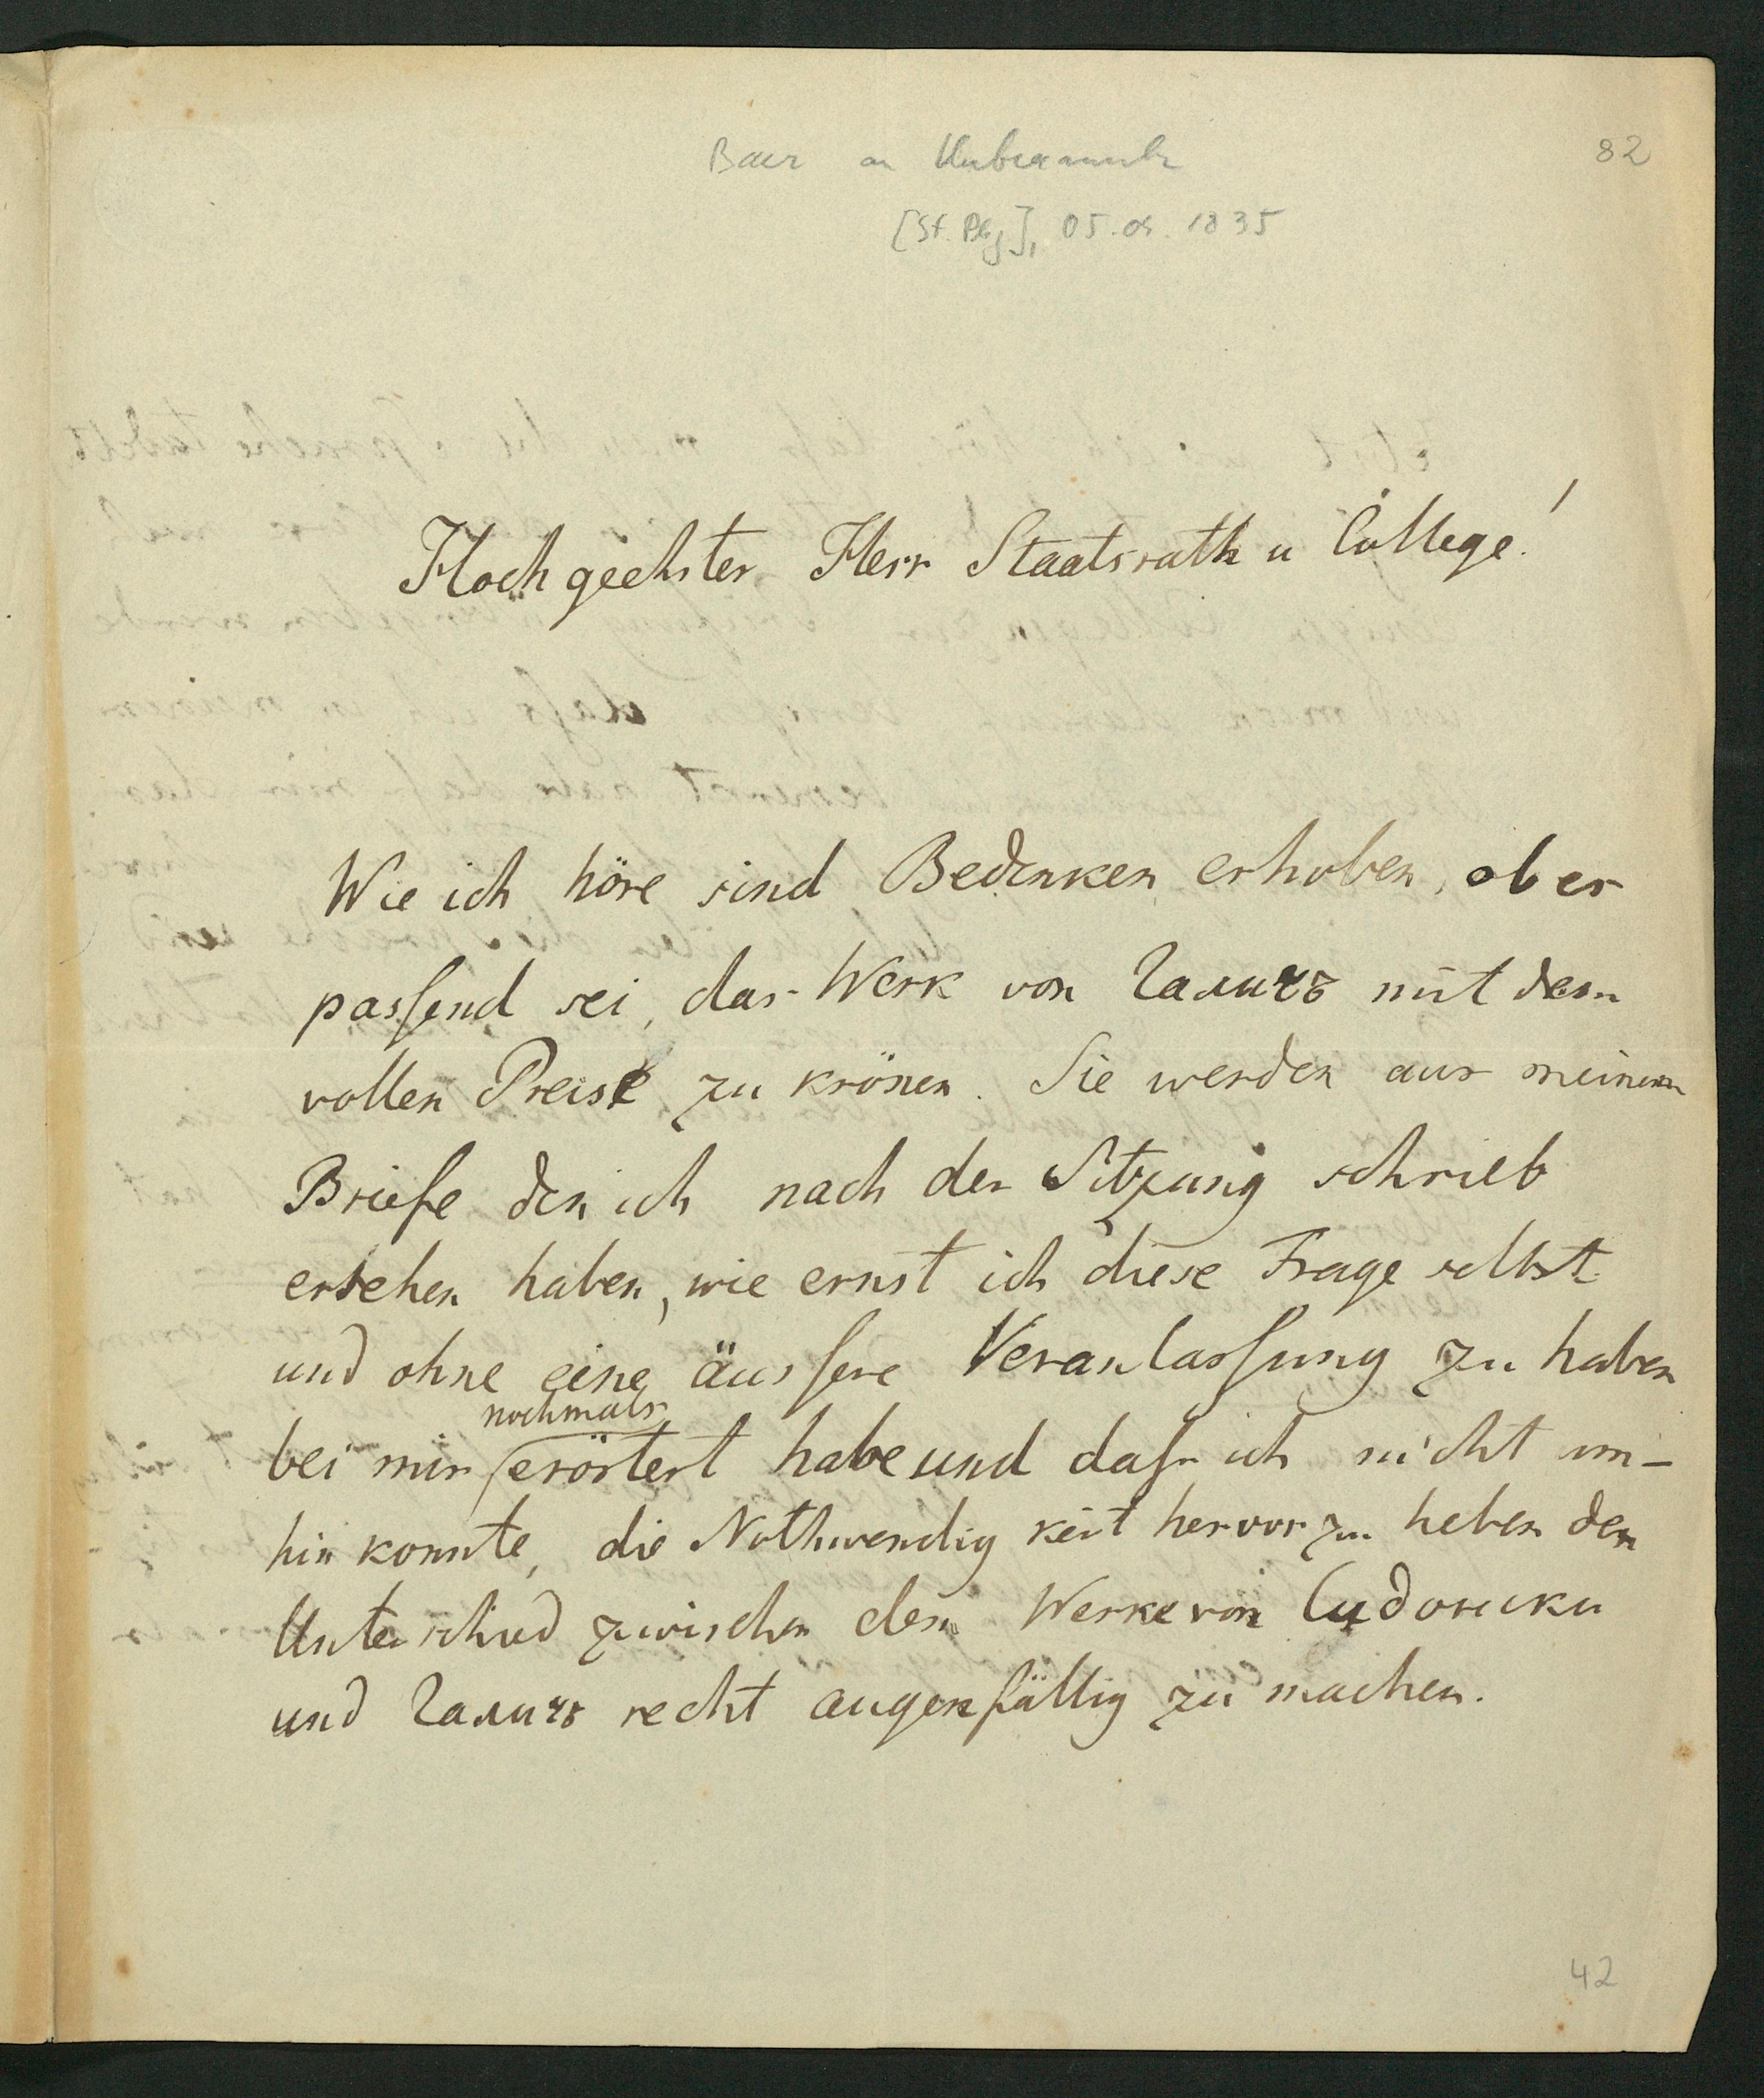 Baer an Unbekannt
82
[St. Pbg], 05.05.1835
Hochgeehrter Herr Staatsrath u College!
Wie ich höre sind Bedenken erhoben, ob es
passend sei, das Werk von Галичъ mit dem
vollen Preise zu krönen. Sie werden aus meinem
Briefe den ich nach der Sitzung schrieb
ersehen haben, wie ernst ich diese Frage selbst
und ohne eine äussere Veranlassung zu haben
nochmals
bei mir erörtert habe und dass ich nicht um-
hin konnte, die Nothwendigkeit hervorzuheben den
Unterschied zwischen dem Werke von Сидонски
und Галичъ recht augenfällig zu machen.
42